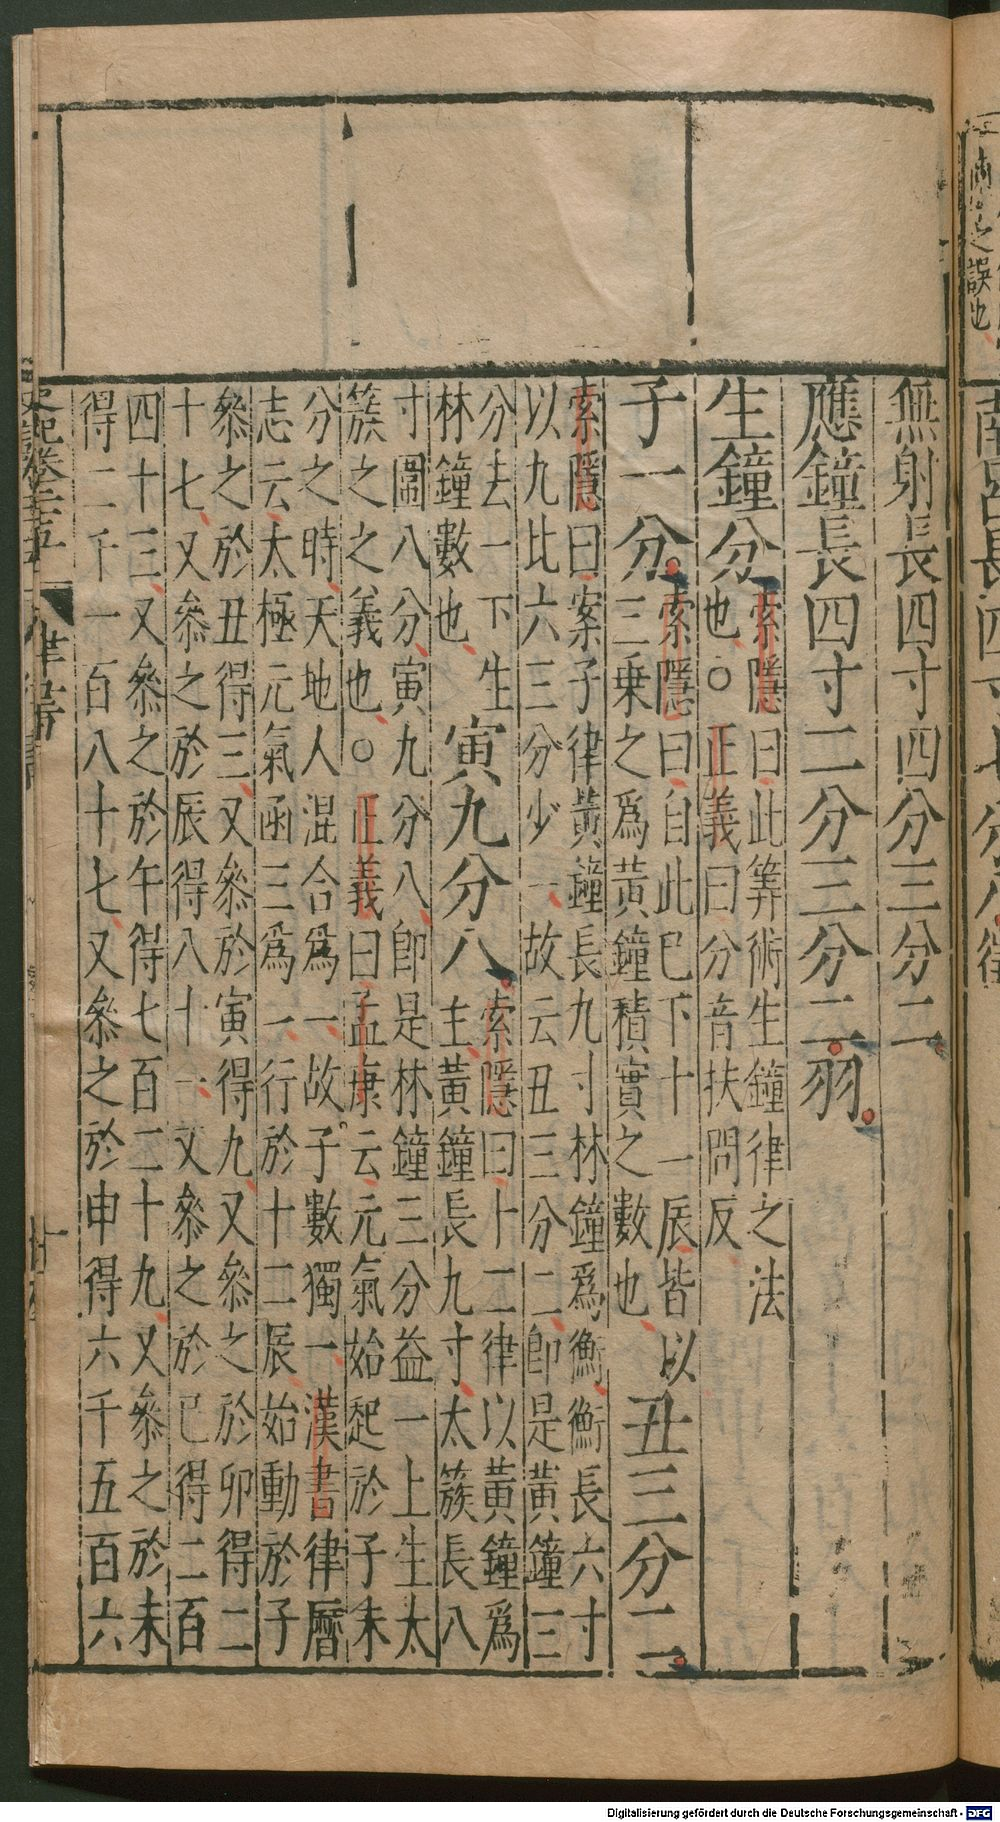 之誤也
南呂長四寸七分八徵
無射長四寸四分三分二
應鐘長四寸二分三分二羽
生鐘分索隱曰此筭術生鐘律之法
也○正義曰分音扶問反
子一分索隱曰自此巳下十一辰皆以
三乗之爲黃鐘積實之數也丑三分二
索隱曰案子律黃鐘長九寸林鐘爲衡衡長六寸
以九比六三分少一故云丑三分二卽是黃鐘三
分去一下生
林鐘數也寅九分八索隱曰十二律以黃鐘爲
主黃鐘長九寸太簇長八
寸圖八分寅九分八卽是林鐘三分益一上生太
簇之之義也○正義曰孟康云元氣始起於子未
分之時天地人混合爲一故子數獨一漢書律曆
志云太極元氣函三爲一行於十二辰始動於子
參之於丑得三又參於寅得九又參之於卯得二
十七又參之於辰得八十一又參之於巳得二百
四十三又參之於午得七百二十九又參之於未
得二千一百八十七又參之於申得六千五百六
史記卷二十五 律書三
Digitalisierung gefördert durch die Deutsche Forschungsgemeinschaft - DFG